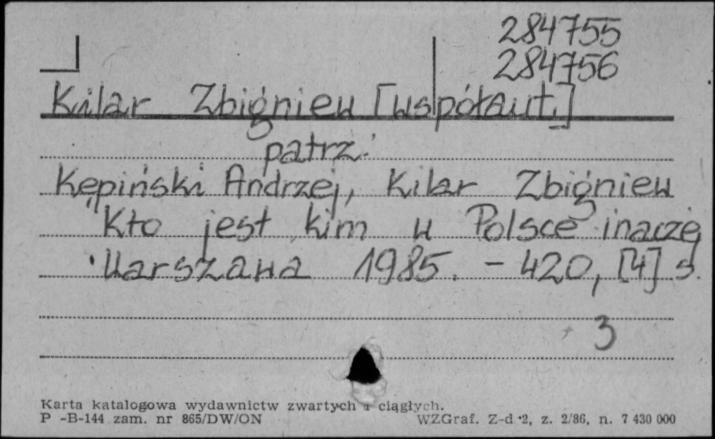 284755
284756
Kilar Zbigniew [współaut.]
patrz:
Kępiński Andrzej, Kilar Zbigniew
Kto jest kim w Polsce inaczej
Warszawa 1985. - 420, [4] s.
3
Karta katalogowa wydawnictw zwartych i ciągłych.
P -B-144 zam. nr 865/DW/ON WZGraf. Z-d 2, z. 2/86, n. 7 430 000